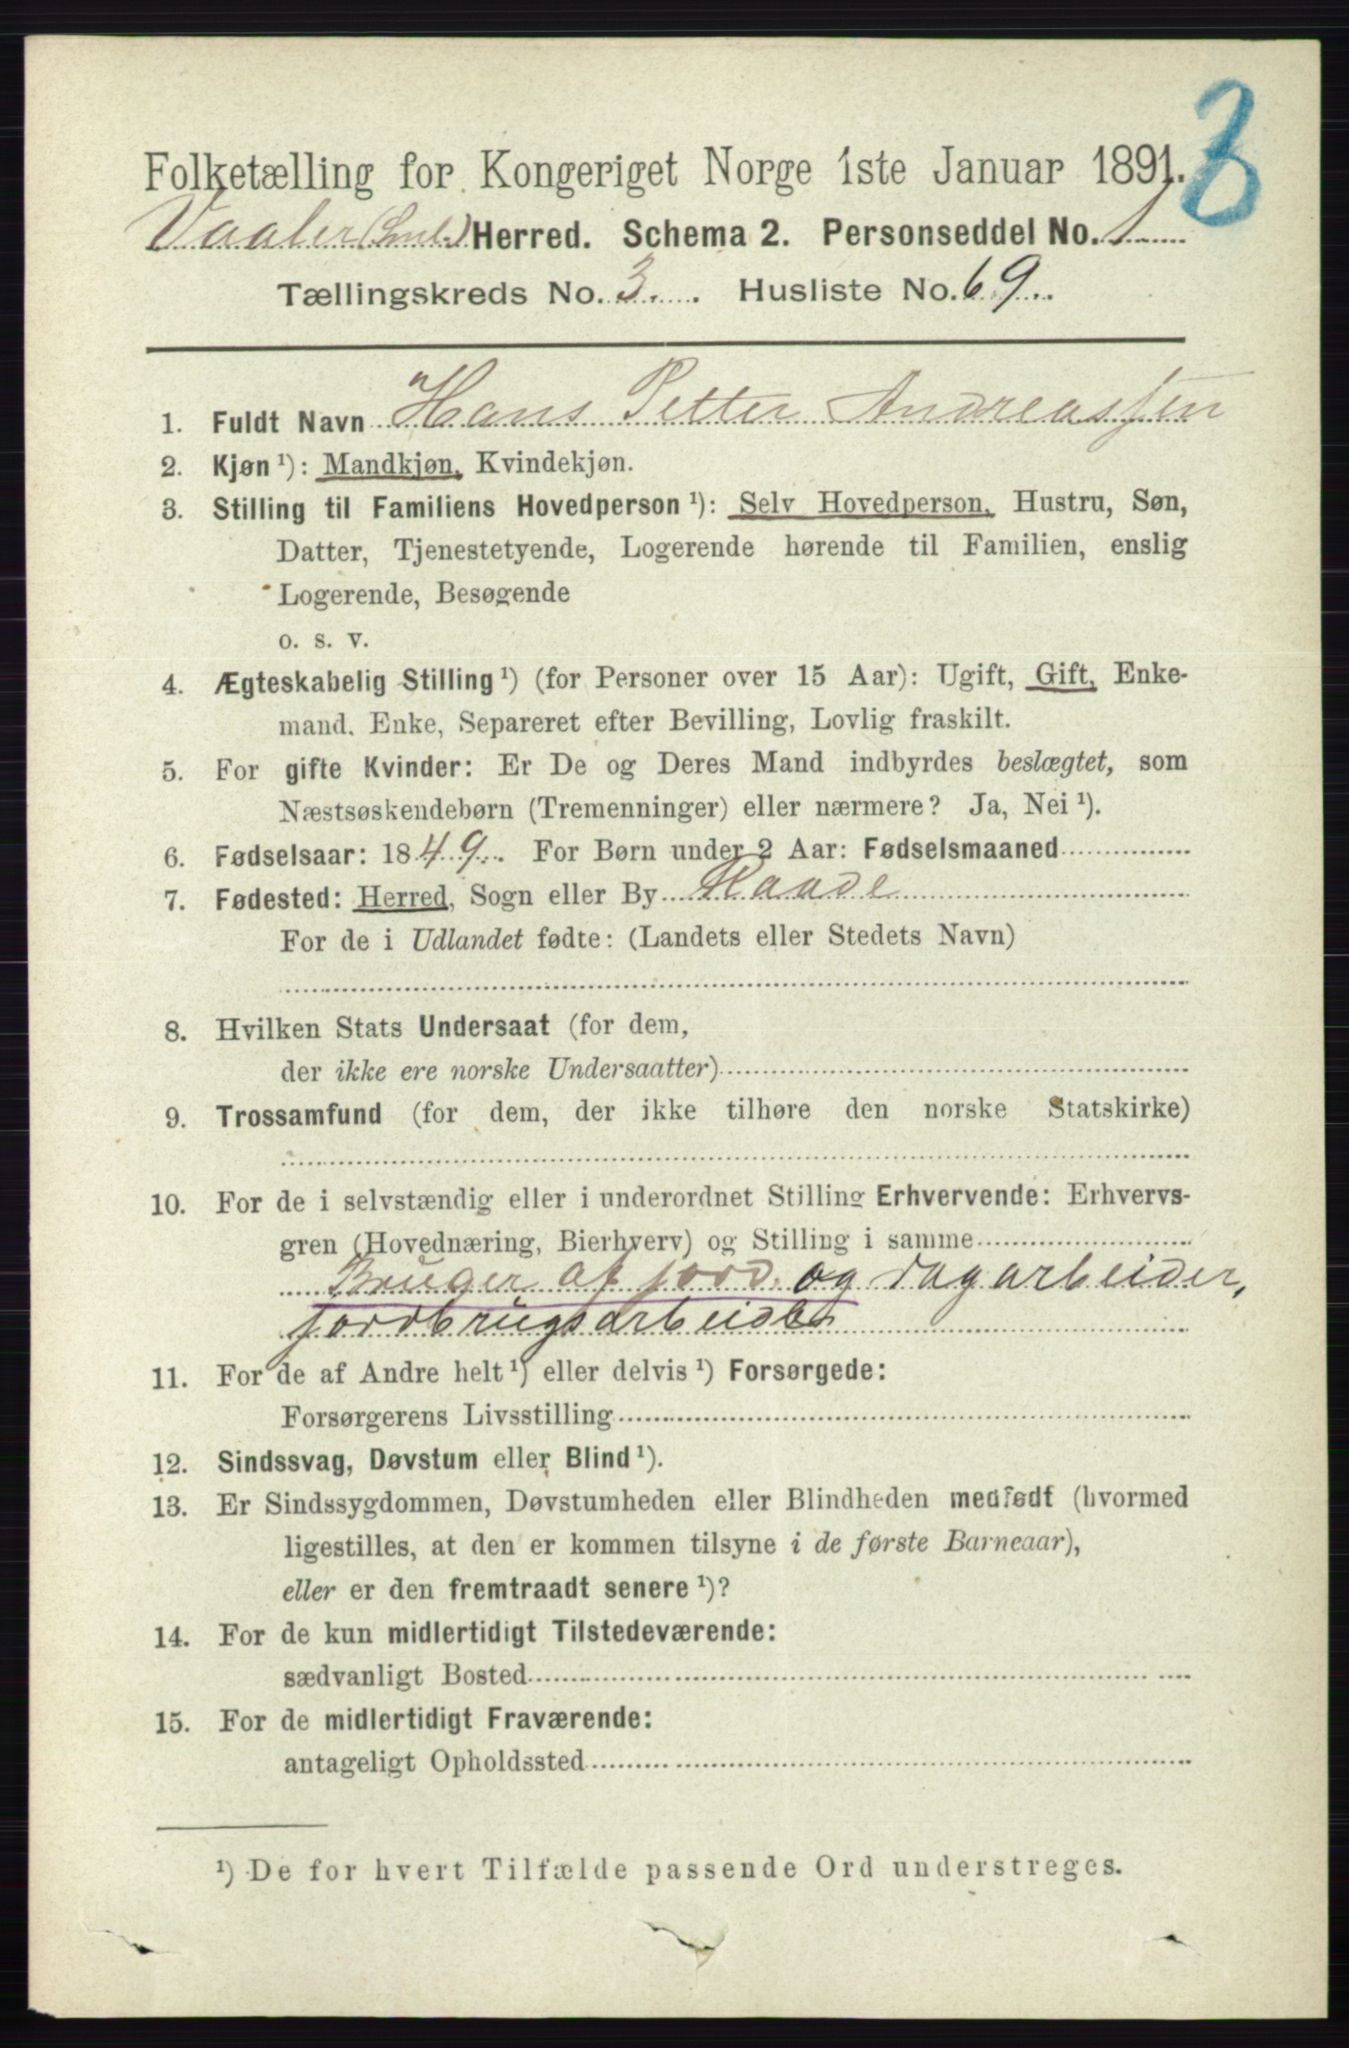 Folketælling for Kongeriget Norge 1ste Januar 1891.
Vaaler (Sml.) Herred. Schema 2. Personseddel No. 1
Tællingskreds No. 3. Husliste No. 69
1. Fuldt Navn Hans Petter Andreassen
2. Kjøn ¹): Mandkjøn, Kvindekjøn.
3. Stilling til Familiens Hovedperson ¹): Selv Hovedperson, Hustru, Søn,
Datter, Tjenestetyende, Logerende hørende til Familien, enslig
Logerende, Besøgende
o. s. v.
4. Ægteskabelig Stilling ¹) (for Personer over 15 Aar): Ugift, Gift, Enke-
mand, Enke, Separeret efter Bevilling, Lovlig fraskilt.
5. For gifte Kvinder: Er De og Deres Mand indbyrdes beslægtet, som
Næstsøskendebørn (Tremenninger) eller nærmere? Ja, Nei ¹).
6. Fødselsaar: 1849. For Børn under 2 Aar: Fødselsmaaned
7. Fødested: Herred, Sogn eller By Raade
For de i Udlandet fødte: (Landets eller Stedets Navn)
8. Hvilken Stats Undersaat (for dem,
der ikke ere norske Undersaatter)
9. Trossamfund (for dem, der ikke tilhøre den norske Statskirke)
10. For de i selvstændig eller i underordnet Stilling Erhvervende: Erhvervs-
gren (Hovednæring, Bierhverv) og Stilling i samme
Bruger af jord. og dagarbeider,
jordbrugsarbeider
11. For de af Andre helt ¹) eller delvis ¹) Forsørgede:
Forsørgerens Livsstilling
12. Sindssvag, Døvstum eller Blind ¹).
13. Er Sindssygdommen, Døvstumheden eller Blindheden medfødt (hvormed
ligestilles, at den er kommen tilsyne i de første Barneaar),
eller er den fremtraadt senere ¹)?
14. For de kun midlertidigt Tilstedeværende:
sædvanligt Bosted
15. For de midlertidigt Fraværende:
antageligt Opholdssted
¹) De for hvert Tilfælde passende Ord understreges.